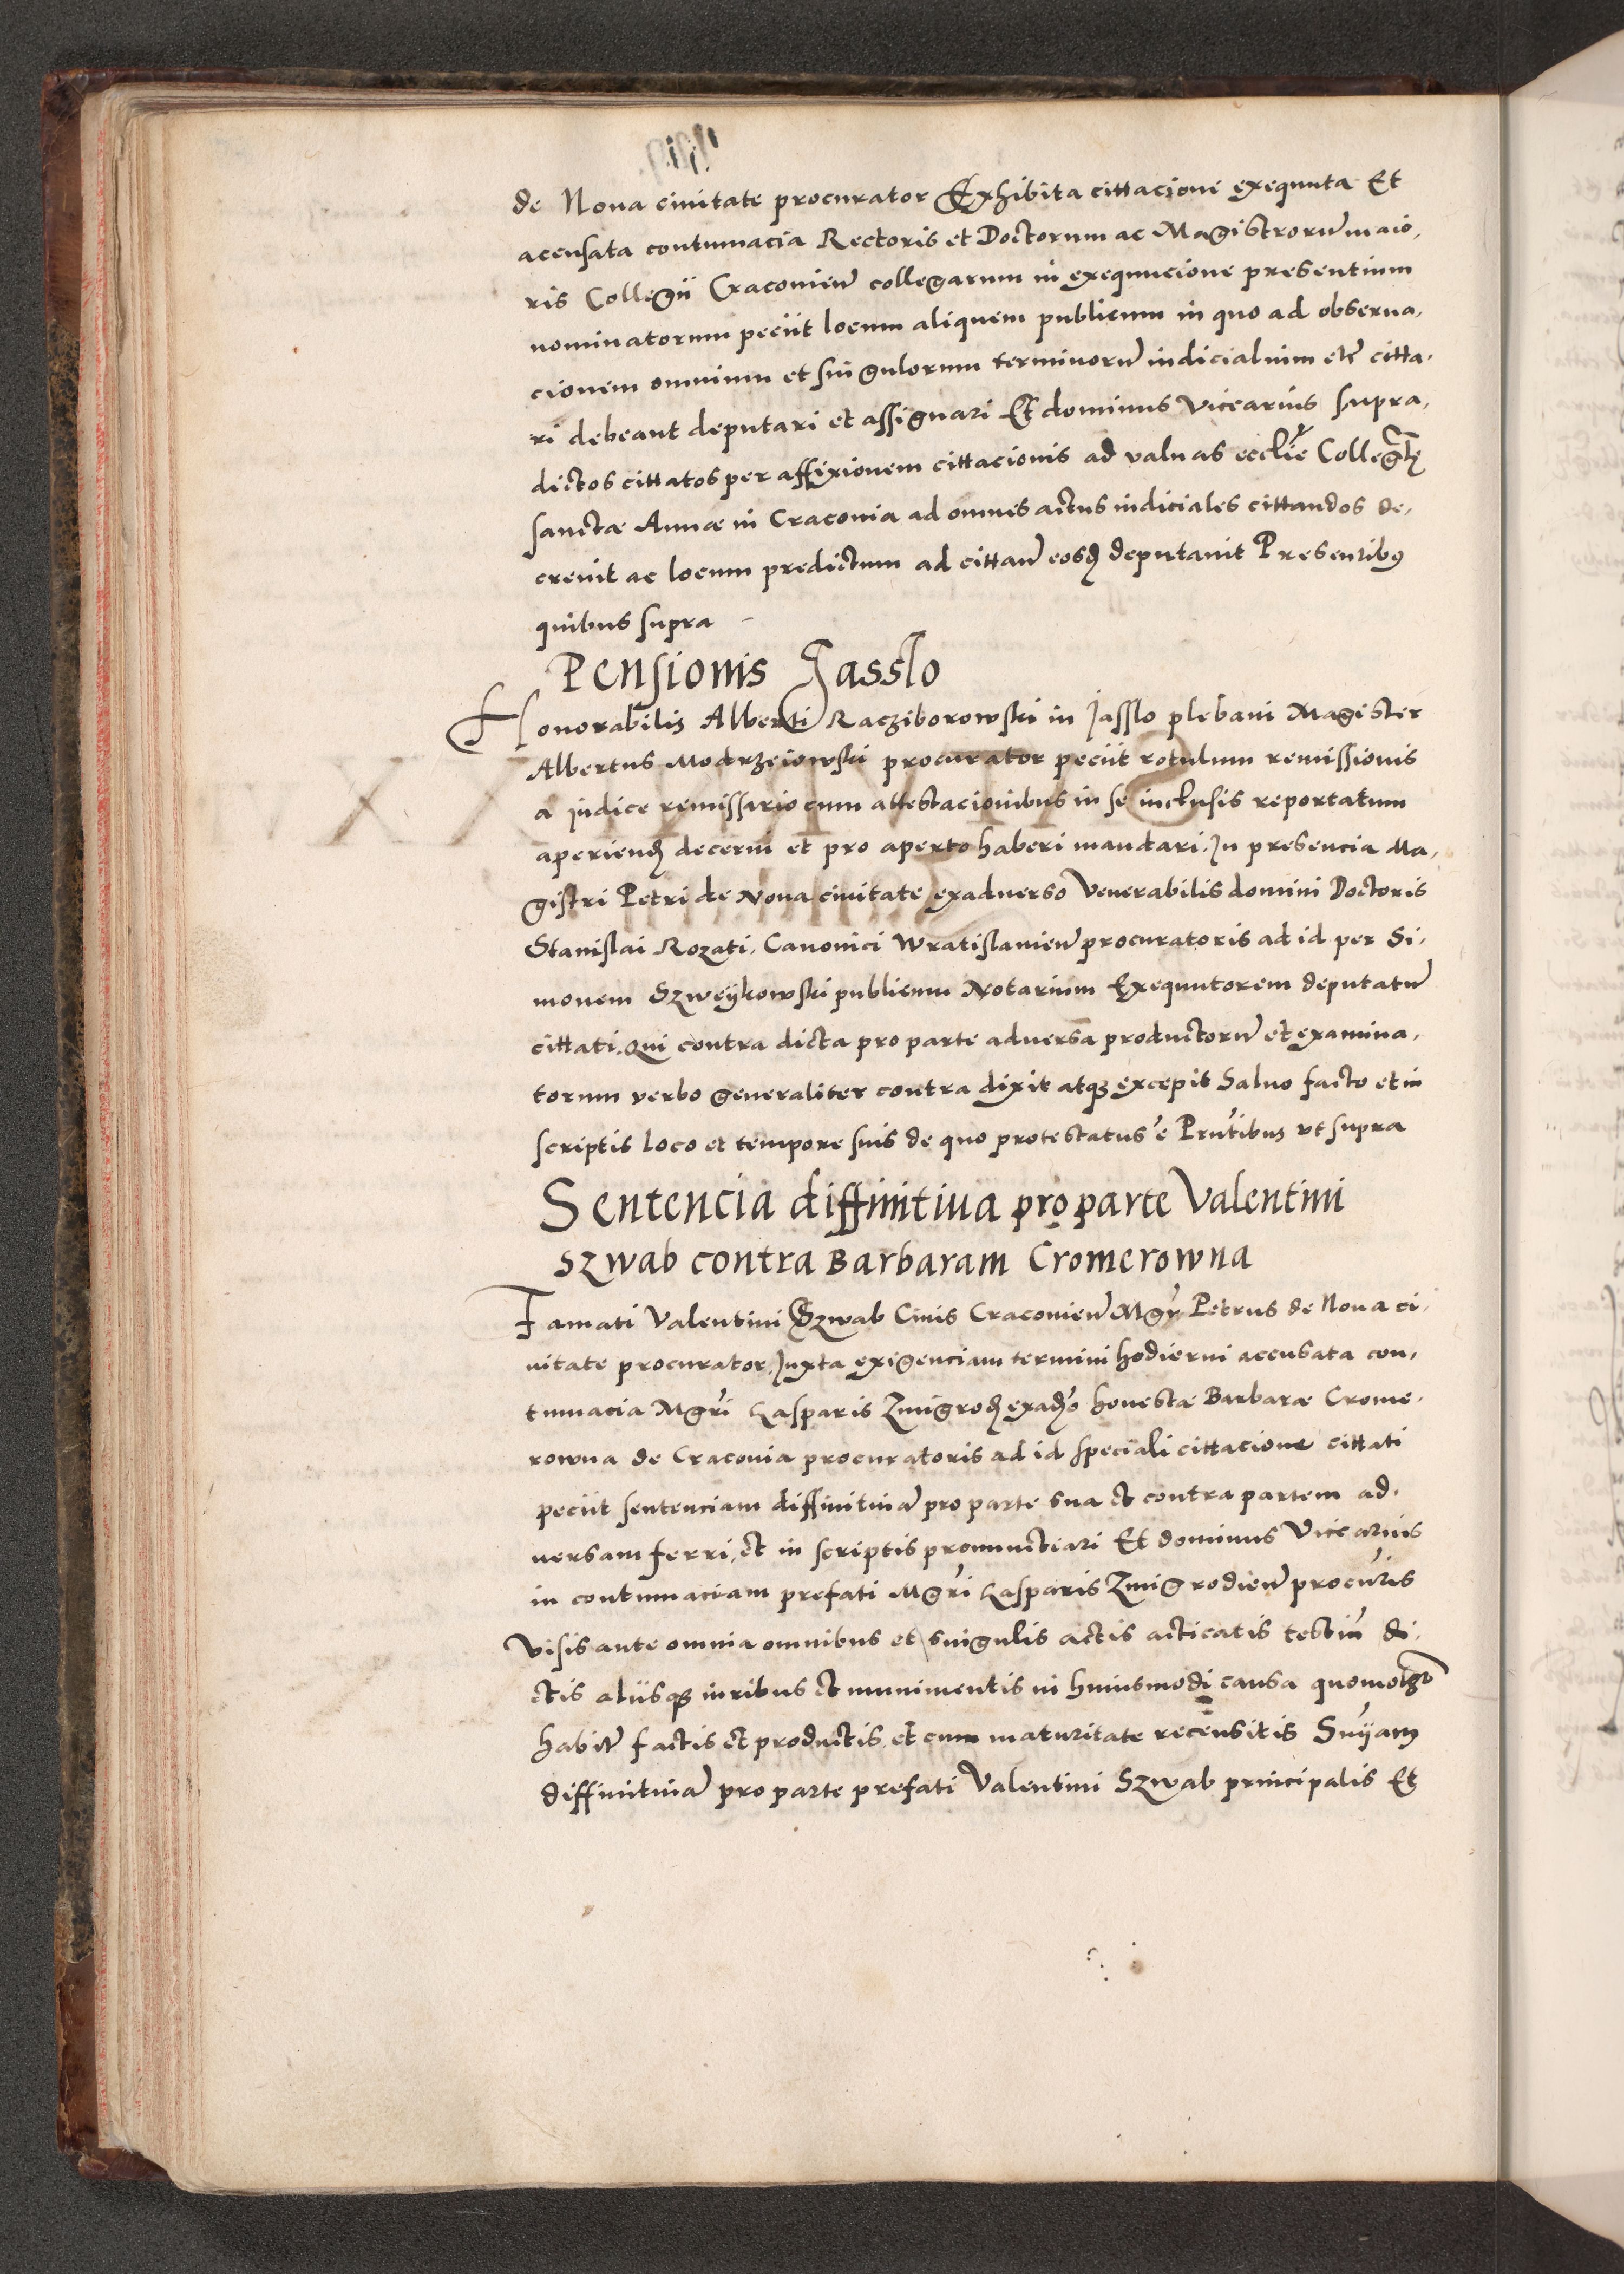 de Noua ciuitate procurator Exhibita cittacione exequuta Et
accusata contumacia Rectoris et Doctorum ac Magistrorum maio,
ris Collegii Cracouien collegarum in exequucione presentium
nominatorum peciit locum aliquem publicum in quo ad obserua,
cionem omnium et singulorum terminorum iudicialium etc citta,
ri debeant deputari et assignari Et dominus Vicearius supra,
dictos cittatos per affixionem cittacionis ad valuas ecclie Collegte
sanctæ Annæ in Cracouia ad omnes actus iudiciales cittandos de,
creuit ac locum predictum ad cittan eosd deputauit Presentibus
quibus supra
Pensionis Jasslo
Honorabilis Alberti Racziborowski in Jasslo plebani Magister
Albertus Modrzeiowski procurator peciit rotulum remissionis
a iudice remissario cum attestacionibus in se inclusis reportatum
aperiend decerni et pro aperto haberi mandari. In presencia Ma,
gistri Petri de Noua ciuitate exaduerso Venerabilis domini Doctoris
Stanislai Rozati. Canonici Wratislauien procuratoris ad id per Si,
monem Szweykowski publicum Notarium Exequutorem deputatum
cittati. Qui contra dicta pro parte aduersa productorum et examina,
torum verbo generaliter contra dixit atq excepit Saluo facto et in
scriptis loco et tempore suis de quo protestatus e Pntibus vt supra
Sentencia diffinitiua pro parte Valentini
Szwab contra Barbaram Cromerowna
Famati Valentini Szwab Ciuis Cracouien Mgr Petrus de Noua ci,
uitate procurator. Juxta exigenciam termini hodierni accusata con,
tumacia Mgri Casparis Zmigrod exado honestæ Barbaræ Crome,
rowna de Cracouia procuratoris ad id speciali cittacione cittati
peciit sentenciam diffinitiua pro parte sua et contra partem ad,
uersam ferri, et in scriptis pronunctiari Et dominus Vicearius
in contumaciam prefati Mgri Casparis Zmigrodien procuris
Visis ante omnia omnibus et singulis actis acticatis testiu di,
ctis aliisq iuribus et munimentis in huiusmodi causa
habitis factis et productis et cum maturitate recensitis Sniam
diffinitiua pro parte prefati Valentini Szwab principalis Et